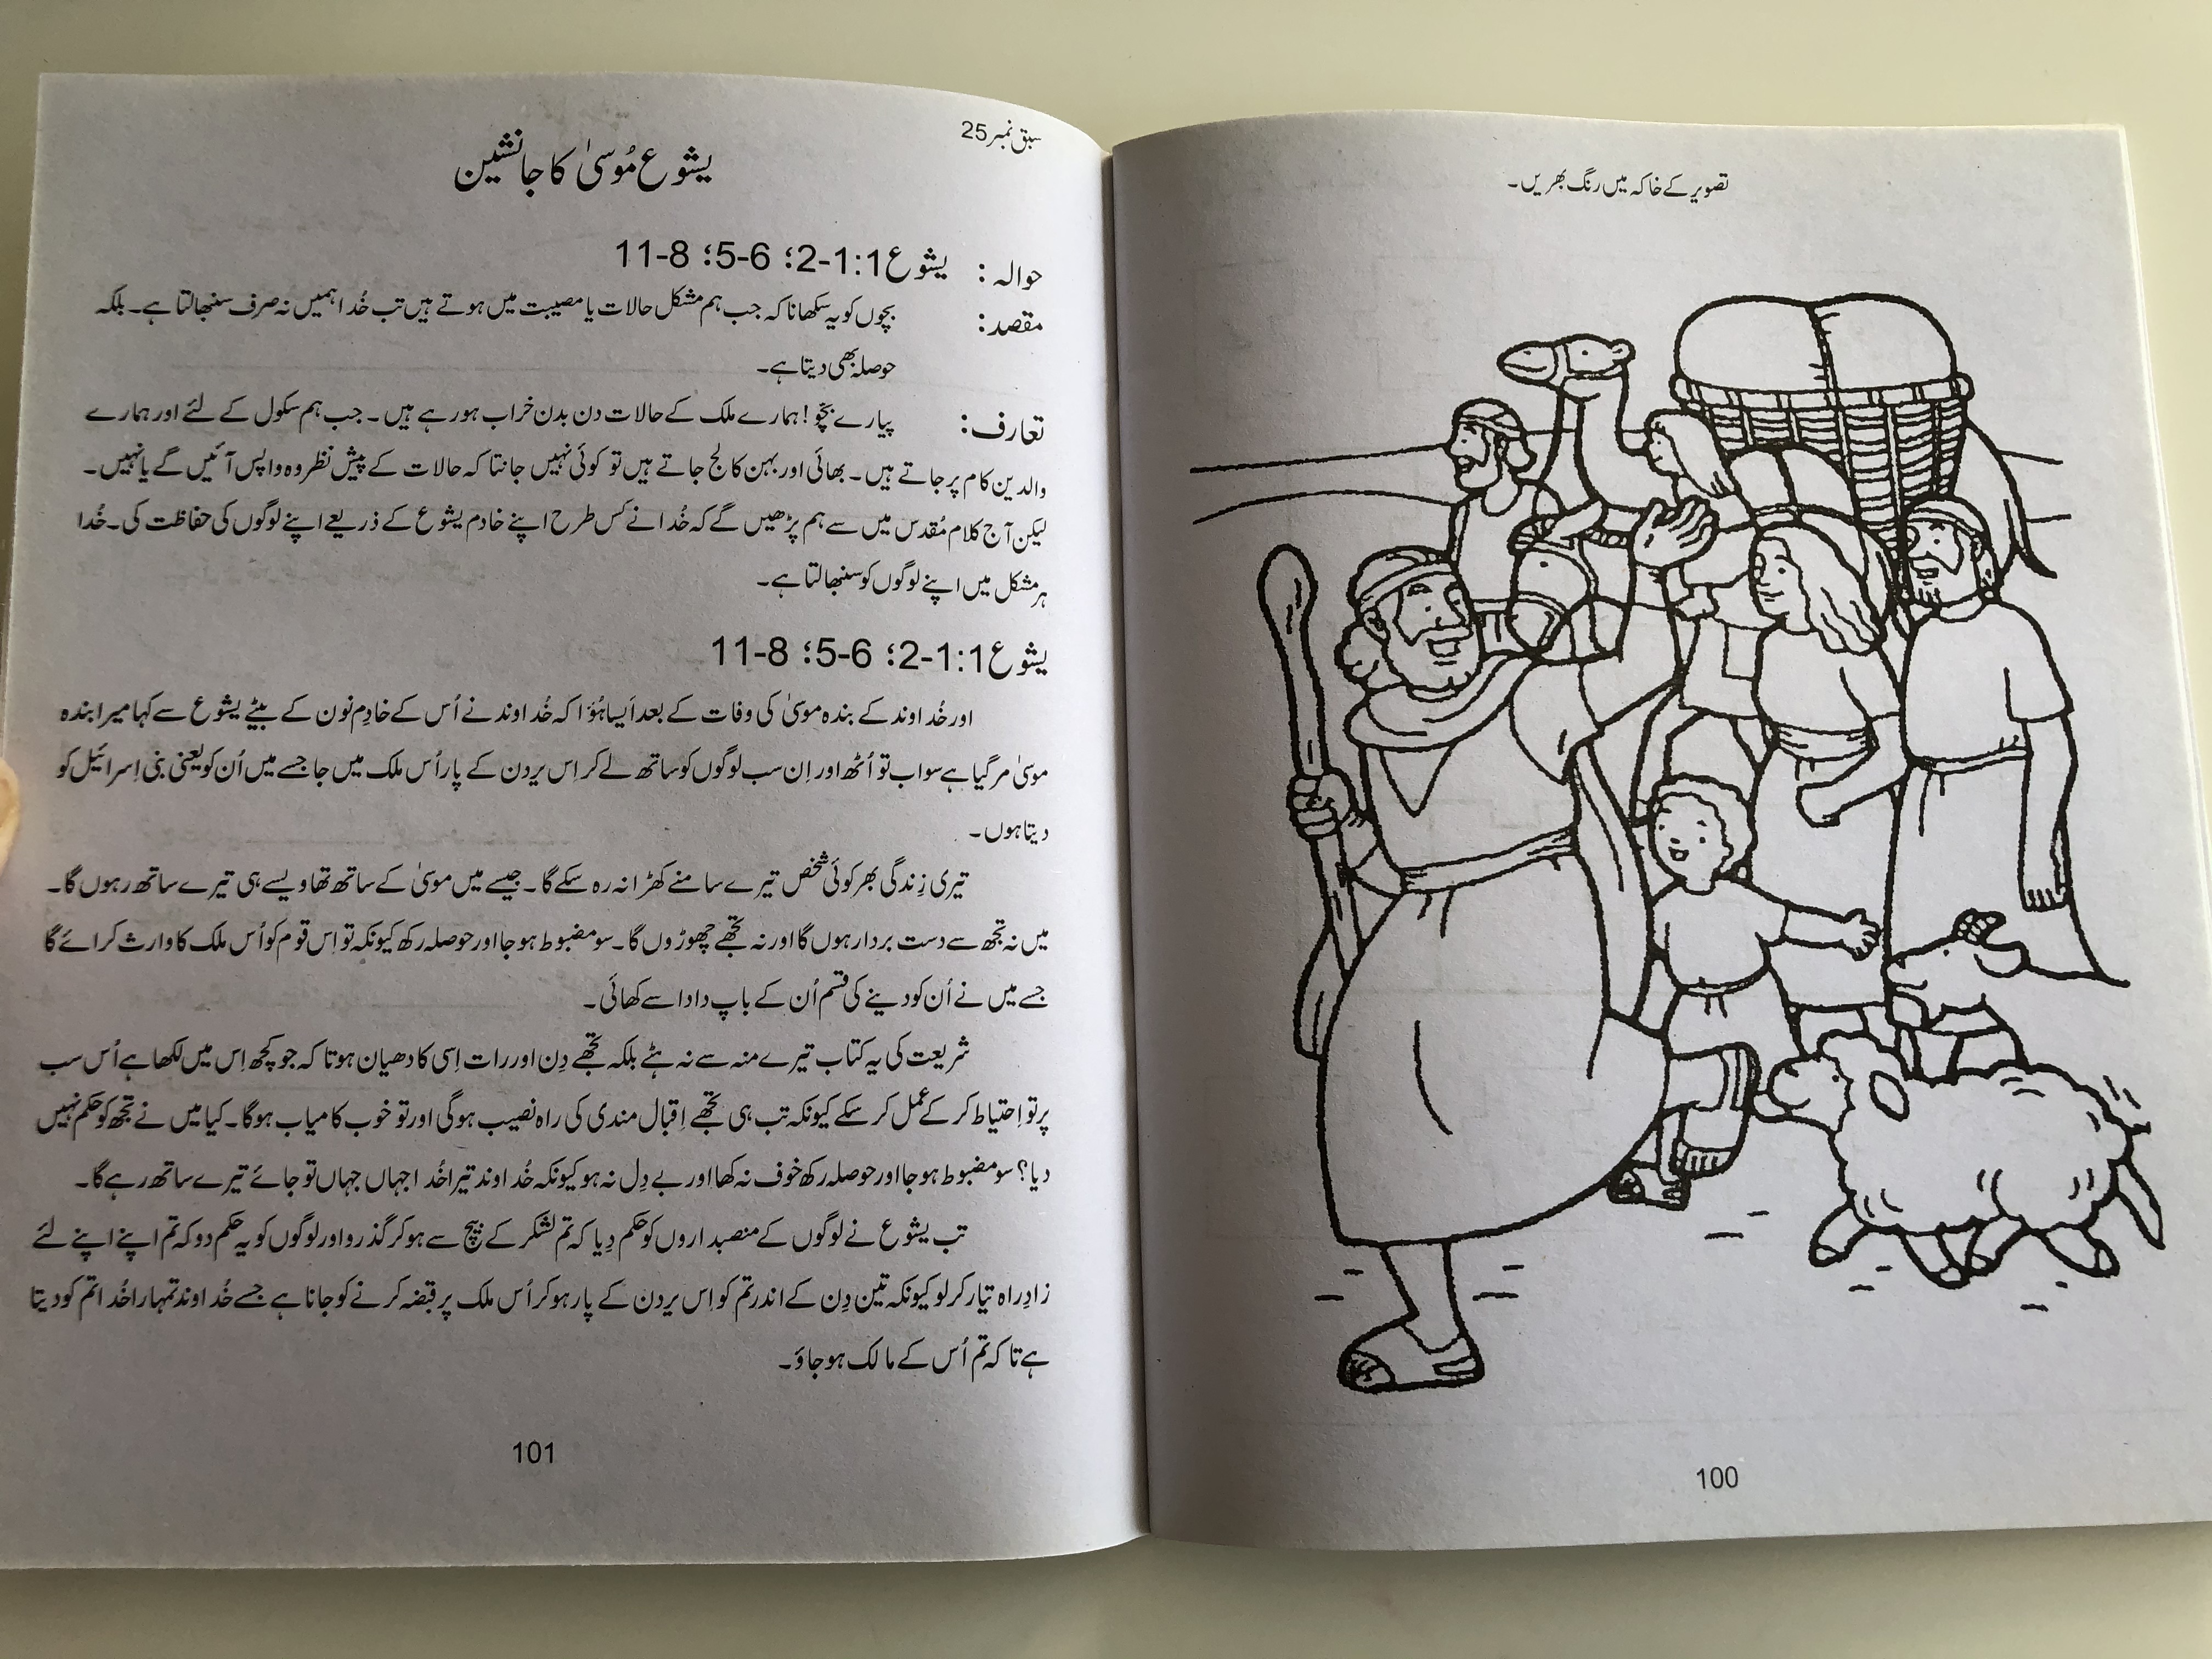 تصویر کے خاکہ میں رنگ بھریں۔
100
سبق نمبر 25
یشوع مُوسیٰ کا جانشین
حوالہ: یشوع 1:1-2؛ 5-6؛ 8-11
مقصد: بچوں کو یہ سکھانا کہ جب ہم مشکل حالات یا مصیبت میں ہوتے ہیں تب خُدا ہمیں نہ صرف سنبھالتا ہے۔ بلکہ
حوصلہ بھی دیتا ہے۔
تعارف: پیارے بچّو! ہمارے ملک کے حالات دن بدن خراب ہو رہے ہیں۔ جب ہم سکول کے لئے اور ہمارے
والدین کام پر جاتے ہیں۔ بھائی اور بہن کالج جاتے ہیں تو کوئی نہیں جانتا کہ حالات کے پیش نظر وہ واپس آئیں گے یا نہیں۔
لیکن آج کلام مُقدس میں سے ہم پڑھیں گے کہ خُدا نے کس طرح اپنے خادم یشوع کے ذریعے اپنے لوگوں کی حفاظت کی۔ خُدا
ہر مشکل میں اپنے لوگوں کو سنبھالتا ہے۔
یشوع 1:1-2؛ 5-6؛ 8-11
اور خُداوند کے بندہ موسیٰ کی وفات کے بعد اَیسا ہُوٴا کہ خُداوند نے اُس کے خادِم نون کے بیٹے یشوع سے کہا میرا بندہ
موسیٰ مر گیا ہے سو اب تو اُٹھ اور اِن سب لوگوں کو ساتھ لے کر اِس یردن کے پار اُس ملک میں جا جسے میں اُن کو یعنی بنی اِسرائیل کو
دیتا ہوں۔
تیری زِندگی بھر کوئی شخص تیرے سامنے کھڑا نہ رہ سکے گا۔ جیسے میں موسیٰ کے ساتھ تھا ویسے ہی تیرے ساتھ رہوں گا۔
میں نہ تجھ سے دست بردار ہوں گا اور نہ تجھے چھوڑوں گا۔ سو مضبوط ہو جا اور حوصلہ رکھ کیونکہ تو اِس قوم کو اُس ملک کا وارث کرائے گا
جسے میں نے اُن کو دینے کی قسم اُن کے باپ دادا سے کھائی۔
شریعت کی یہ کتاب تیرے منہ سے نہ ہٹے بلکہ تجھے دِن اور رات اِسی کا دھیان ہو تا کہ جو کچھ اِس میں لکھا ہے اُس سب
پر تو اِحتیاط کر کے عمل کر سکے کیونکہ تب ہی تجھے اِقبال مندی کی راہ نصیب ہوگی اور تو خوب کامیاب ہوگا۔ کیا میں نے تجھ کو حکم نہیں
دیا؟ سو مضبوط ہو جا اور حوصلہ رکھ خوف نہ کھا اور بے دِل نہ ہو کیونکہ خُداوند تیرا خُدا جہاں جہاں تو جائے تیرے ساتھ رہے گا۔
تب یشوع نے لوگوں کے منصبداروں کو حکم دِیا کہ تم لشکر کے بیچ سے ہو کر گذرو اور لوگوں کو یہ حکم دو کہ تم اپنے اپنے لئے
زادِراہ تیار کر لو کیونکہ تین دِن کے اندر تم کو اِس یردن کے پار ہو کر اُس ملک پر قبضہ کرنے کو جانا ہے جسے خُداوند تمہارا خُدا تم کو دیتا
ہے تا کہ تم اُس کے مالک ہو جاؤ۔
101